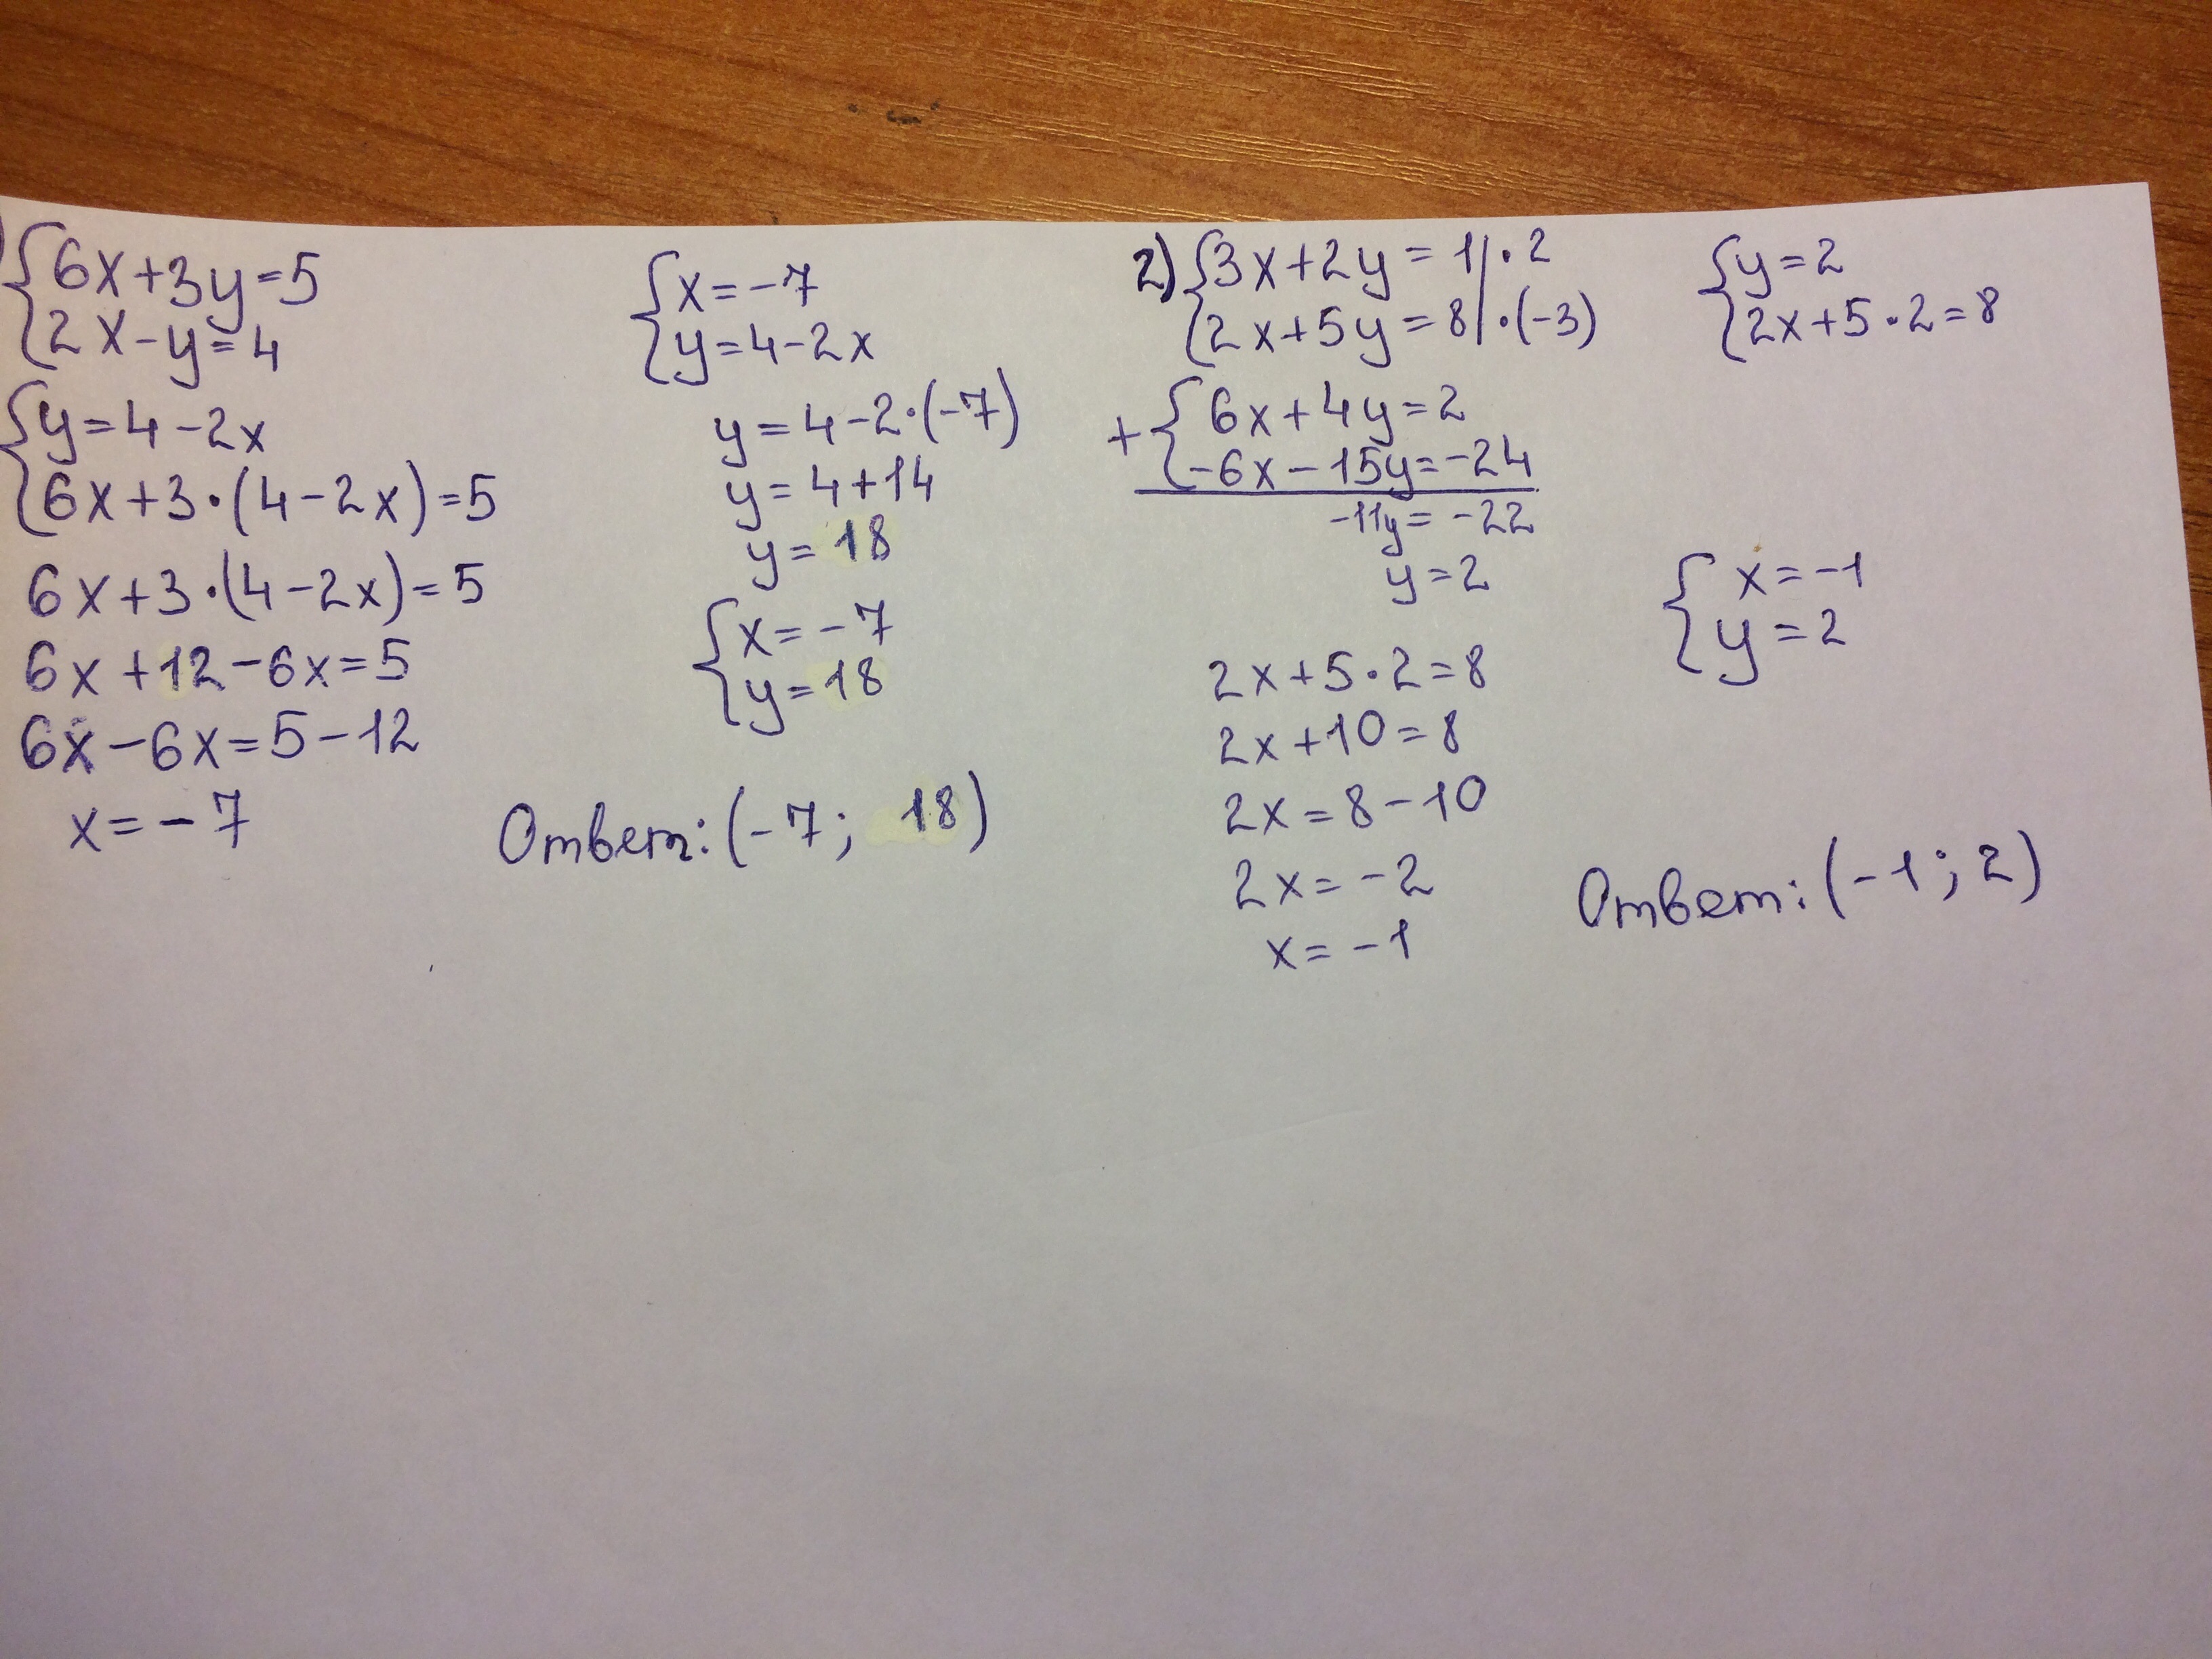 6x+3y=5
2x-y=4
y=4-2x
6x+3·(4-2x)=5
6x+3·(4-2x)=5
6x+12-6x=5
6x-6x=5-12
x=-7
x=-7
y=4-2x
y=4-2·(-7)
y=4+14
y=18
x=-7
y=18
Ответ: (-7; 18)
2) 3x+2y=1|·2
2x+5y=8|·(-3)
+ 6x+4y=2
-6x-15y=-24
-11y=-22
y=2
2x+5·2=8
2x+10=8
2x=8-10
2x=-2
x=-1
y=2
2x+5·2=8
x=-1
y=2
Ответ: (-1; 2)